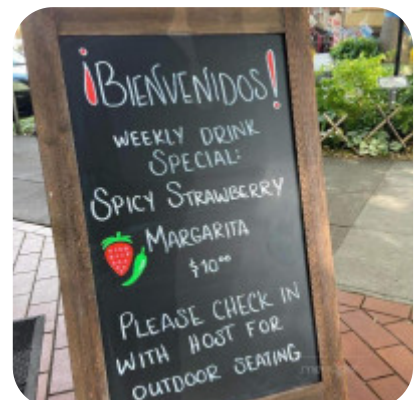 ¡BIENVENIDOS!
WEEKLY DRINK
SPECIAL:
SPICY STRAWBERRY
MARGARITA
$10⁰⁰
PLEASE CHECK IN
WITH HOST FOR
OUTDOOR SEATING